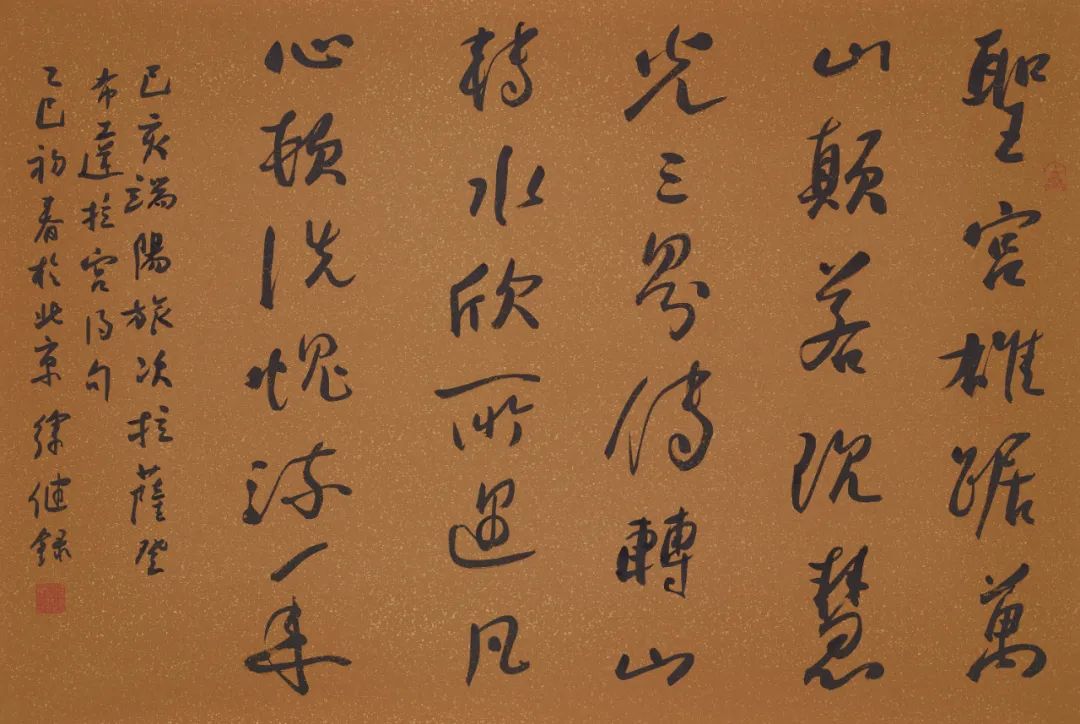 聖宮雄踞萬
山顛若慧
光三界傳轉山
轉水欣所遇凡
心頓洗愧流年
己亥端陽旅次拉薩登
布達拉宮得句
乙巳初春於北京 錄